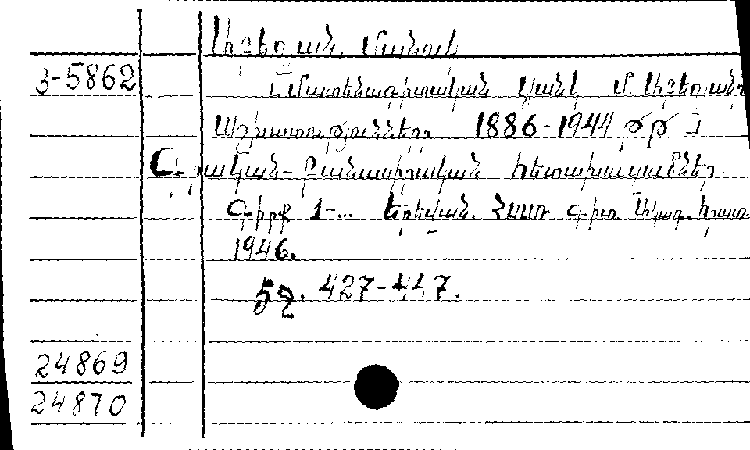 Աբեղյան, Մանուկ
3-5862
Մատենագիտական ցանկ Մ. Աբեղյանի
Աշխատությունների 1886-1944 թթ
Գրական-բանասիրական հետախուզումներ
Գիրք 1-... Երևան. ՀՍՍՌ գիտ. Ակադ. հրատ
1946.
էջ. 427-447.
24869
24870